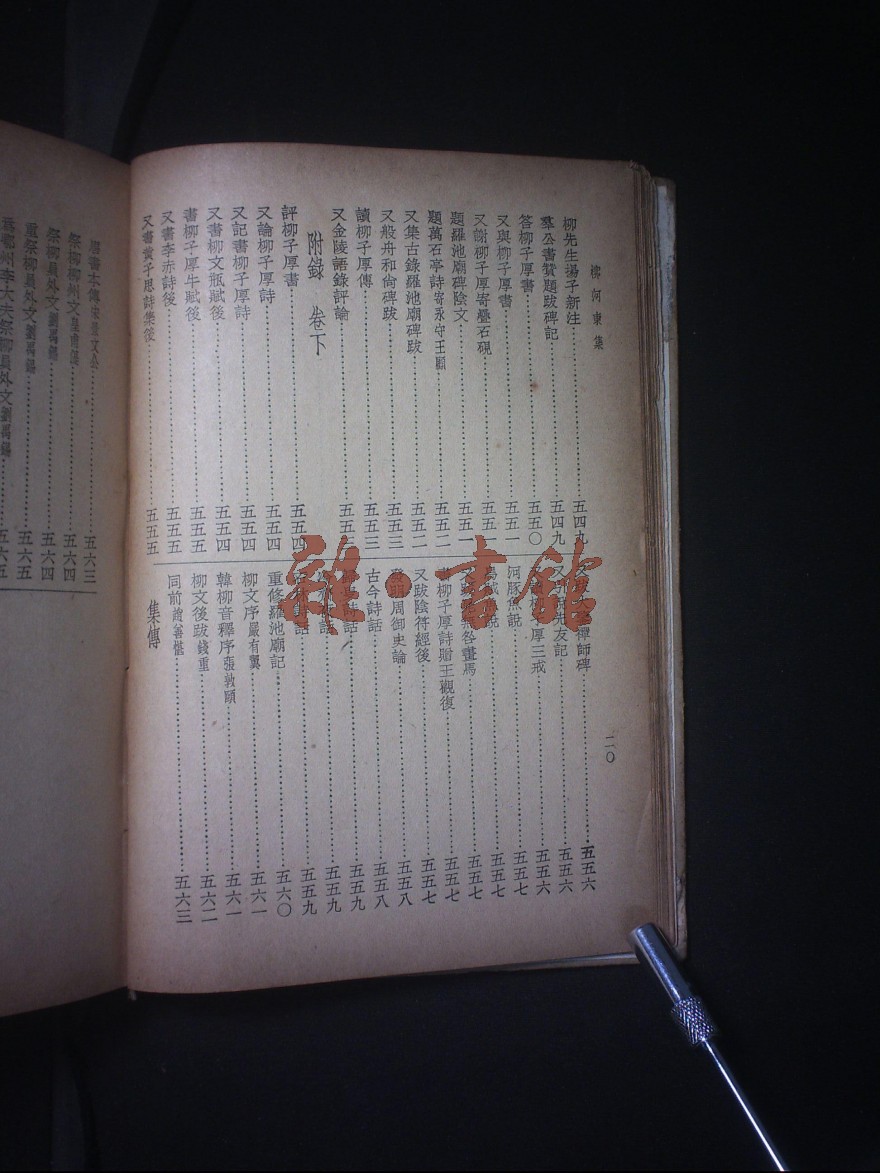 柳河東集
二〇
柳先生謁子新注……五四九
羣公書贊題跋碑記……五四九
答柳子厚書……五五〇
又與柳子厚書……五五一
又謝柳子厚寄疊石硯……五五一
題羅池廟碑陰文……五五一
題萬石亭詩寄永守王顧……五五二
又集古錄羅池廟碑跋……五五二
又般舟和尚碑跋……五五三
讀柳子厚傳……五五三
又金陵語錄評論……五五三
附錄 卷下
評柳子厚書……五五四
又論柳子厚詩……五五四
又記書柳子厚詩……五五四
又書柳文瓶賦後……五五四
書柳子厚牛賦後……五五五
又書李赤詩後……五五五
又書黃子思詩集後……五五五
禪師碑……五五六
友記……五五六
厚三戒……五五六
河豚魚說……五五七
說……五五七
畫馬……五五七
書柳子厚詩贈王觀復……五五七
又跋陰符經後……五五七
發明周御史論……五五八
古今詩話……五五八
詩話……五五九
話……五五九
話……五五九
重修羅池廟記……五六〇
柳文序嚴有翼……五六一
韓柳音釋序張敦頤……五六一
柳文後跋錢重……五六二
同前趙善愖……五六三
集傳
唐書本傳宋景文公……五六三
祭柳柳州文皇甫湜……五六四
祭柳員外文劉禹錫……五六四
重祭柳員外文劉禹錫……五六五
爲鄂州李大夫祭柳員外文劉禹錫……五六五
雜·書館